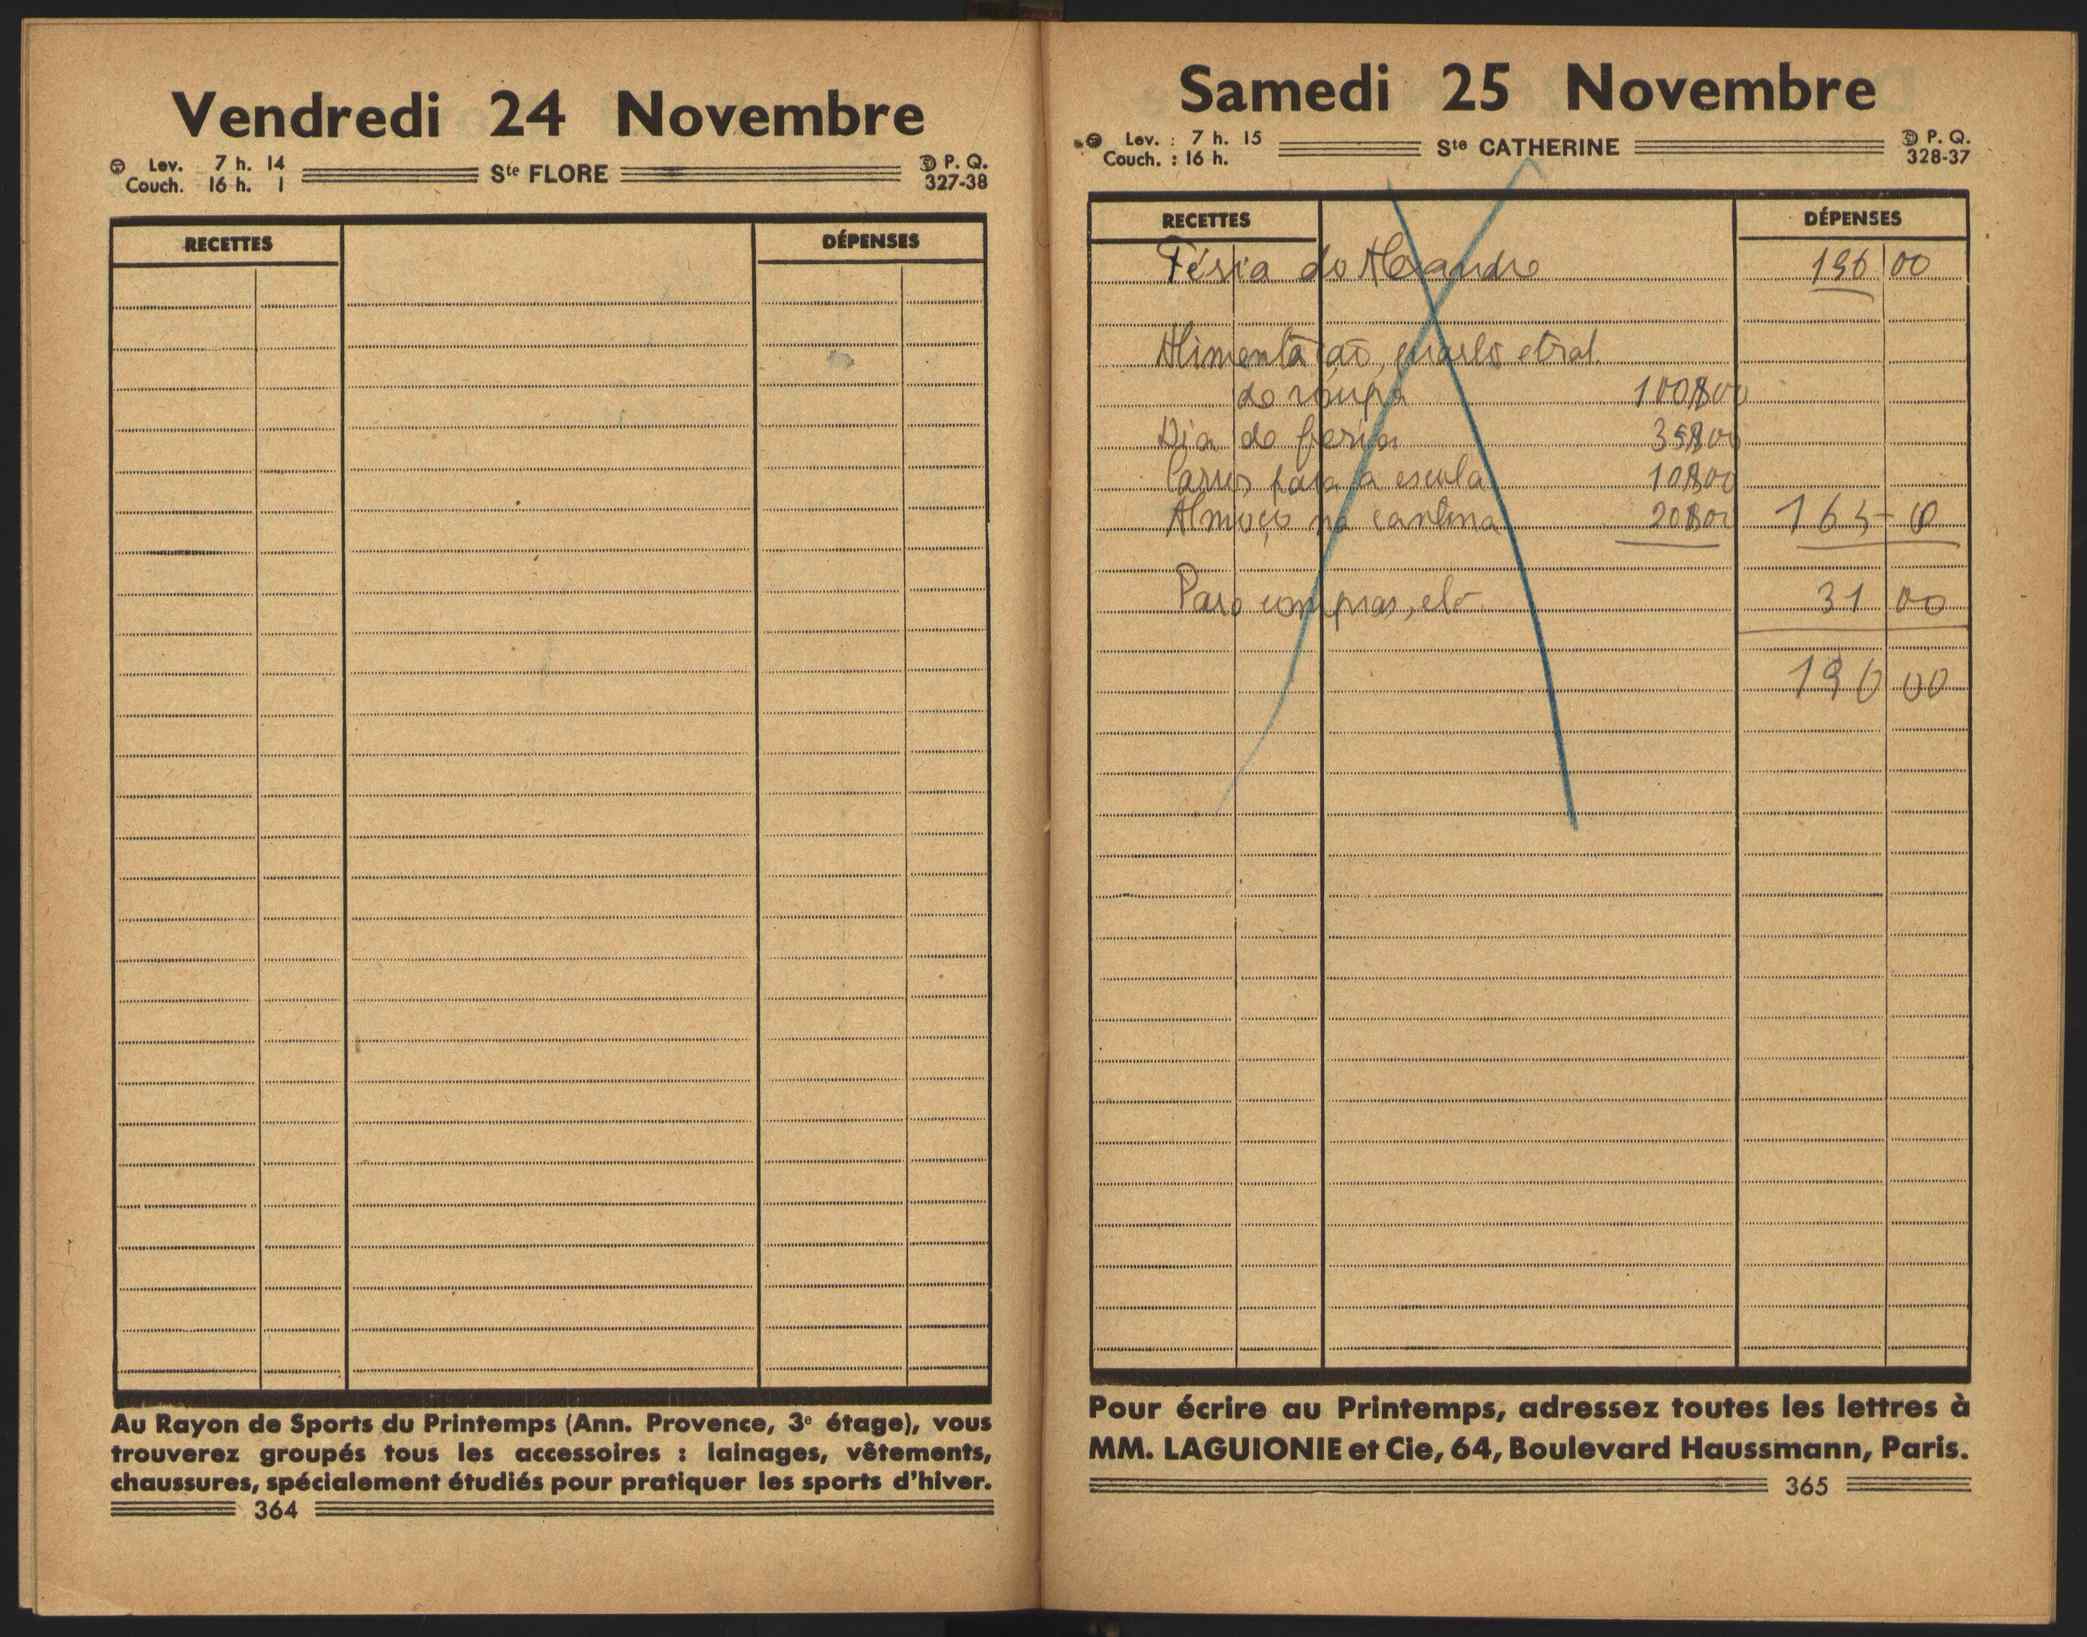 Vendredi 24 Novembre
Lev. 7 h. 14
Couch. 16 h. 1
Ste FLORE
P. Q.
327-38
RECETTES
DÉPENSES
Au Rayon de Sports du Printemps (Ann. Provence, 3e étage), vous
trouverez groupés tous les accessoires : lainages, vêtements,
chaussures, spécialement étudiés pour pratiquer les sports d'hiver.
364
Samedi 25 Novembre
Lev. : 7 h. 15
Couch. : 16 h.
Ste CATHERINE
P. Q.
328-37
RECETTES
DÉPENSES
Féria do Alexandre 196 00
Alimentação, quarto e trat.
de roupa 100$00
Dia de feria 35$00
Carros para a escola 10$00
Almoços na cantina 20$00 165 00
Para compras, etc. 31 00
196 00
Pour écrire au Printemps, adressez toutes les lettres à
MM. LAGUIONIE et Cie, 64, Boulevard Haussmann, Paris.
365